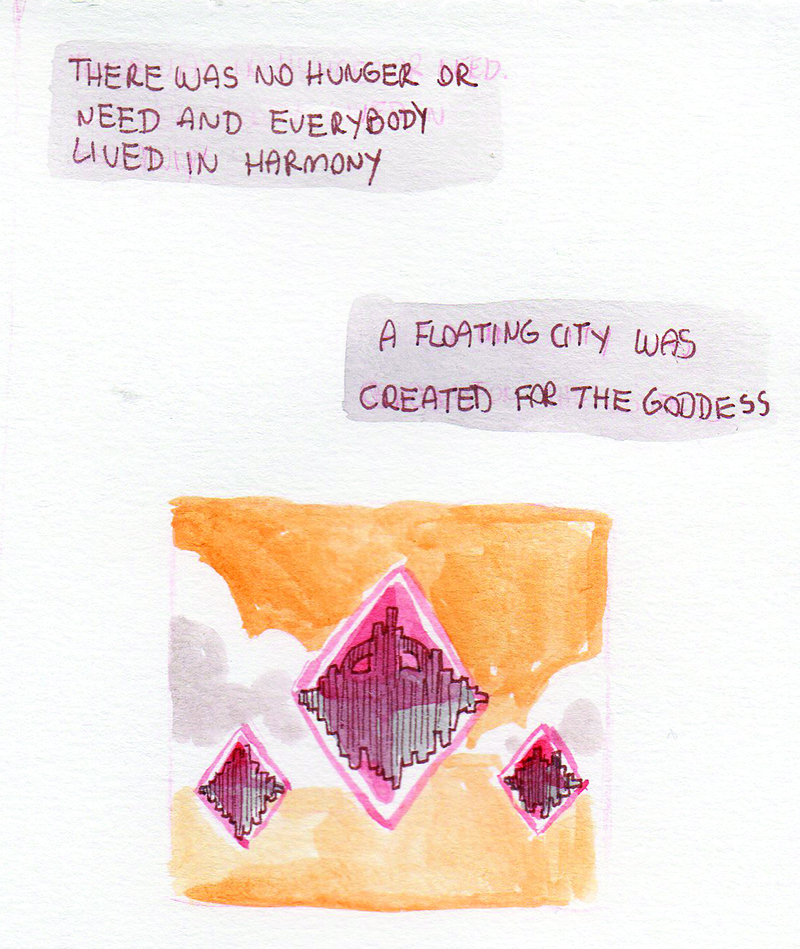 THERE WAS NO HUNGER OR
NEED AND EVERYBODY
LIVED IN HARMONY
A FLOATING CITY WAS
CREATED FOR THE GODDESS